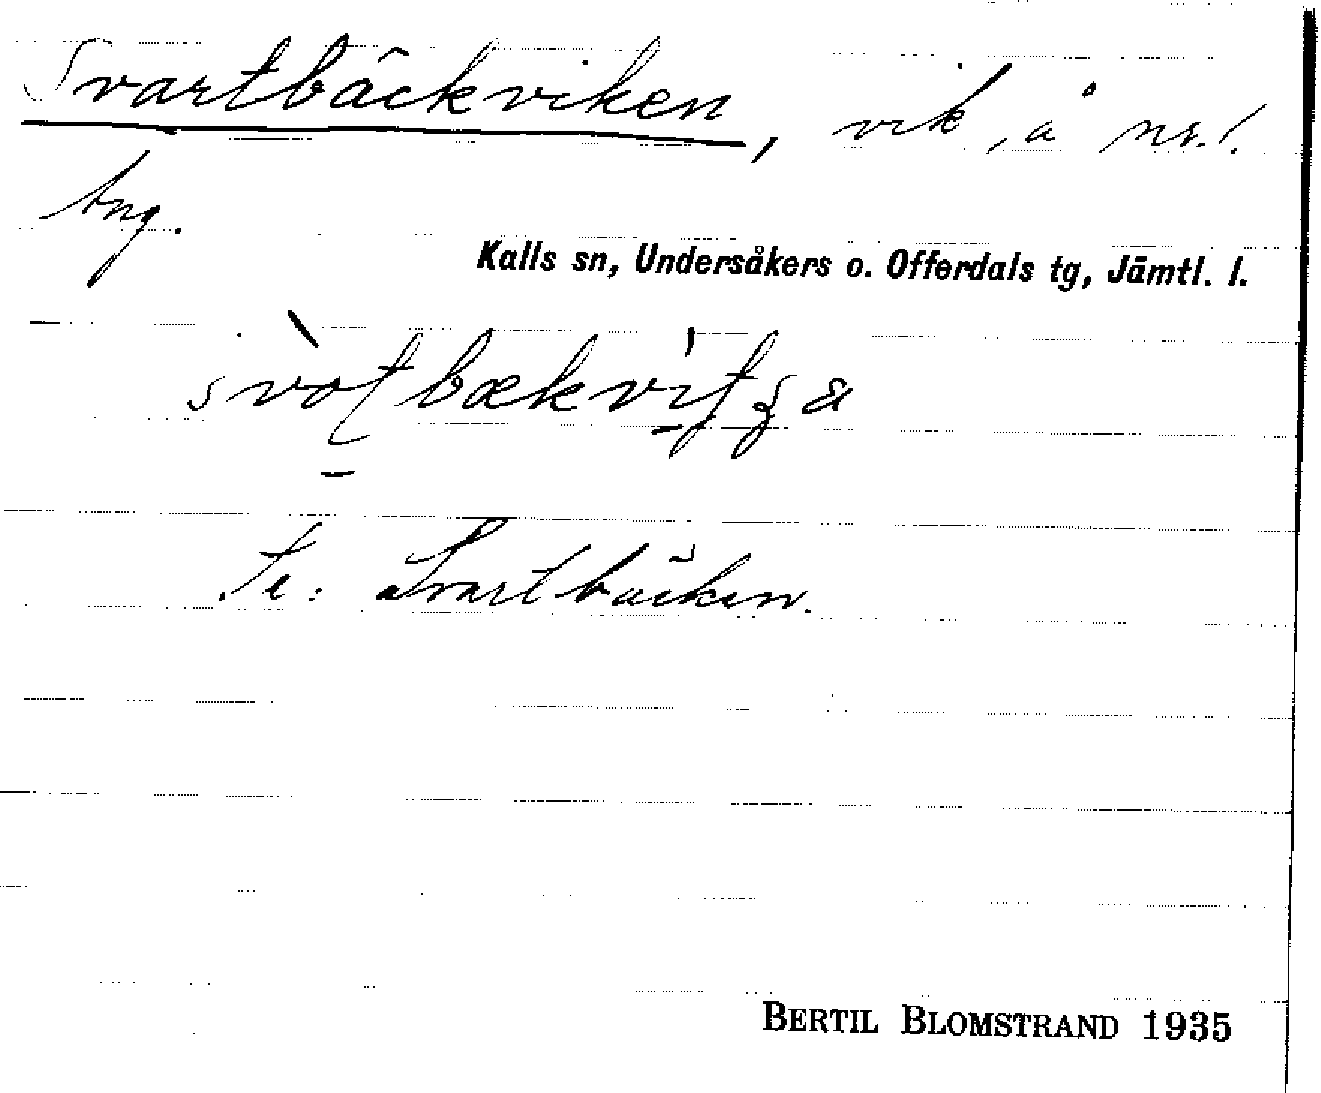 Svartbäckviken, vik, å nr. 1.
Ang.
Kalls sn, Undersåkers o. Offerdals tg, Jämtl. l.
Se: Svartbäcken.
BERTIL BLOMSTRAND 1935